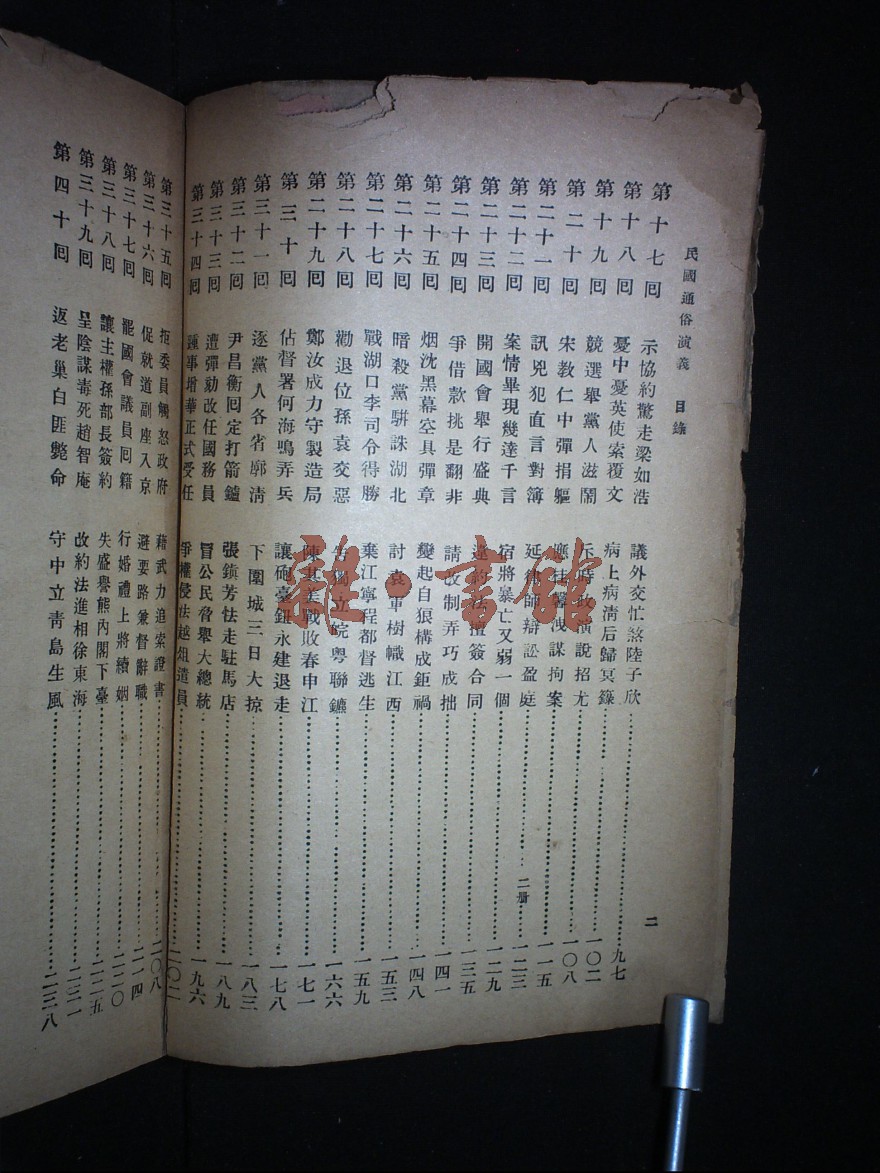 民國通俗演義　目錄
二
第十七囘　示協約驚走梁如浩　議外交忙煞陸子欣……九七
第十八囘　憂中憂英使索覆文　病上病清后歸冥籙……一〇二
第十九囘　競選舉黨人滋鬧　斥時政演說招尤……一〇八
第二十囘　宋教仁中彈捐軀　應桂馨洩謀拘案……一一五
第二十一囘　訊兇犯直言對簿　延律師辯訟盈庭……一二三
二册
第二十二囘　案情畢現幾達千言　宿將暴亡又弱一個……一二九
第二十三囘　開國會舉行盛典　違約法擅簽合同……一三五
第二十四囘　爭借款挑是翻非　請改制弄巧成拙……一四一
第二十五囘　烟沈黑幕空具彈章　變起白狼構成鉅禍……一四八
第二十六囘　暗殺黨駢誅湖北　討袁軍樹幟江西……一五三
第二十七囘　戰湖口李司令得勝　棄江寧程都督逃生……一五九
第二十八囘　勸退位孫袁交惡　告獨立皖粤聯鑣……一六六
第二十九囘　鄭汝成力守製造局　陳其美戰敗春申江……一七一
第三十囘　佔督署何海鳴弄兵　讓砲臺鈕永建退走……一七八
第三十一囘　逐黨人各省廓清　下圍城三日大掠……一八三
第三十二囘　尹昌衡囘定打箭鑪　張鎮芳怯走駐馬店……一八九
第三十三囘　遭彈劾改任國務員　冒公民脅舉大總統……一九六
第三十四囘　踵事增華正式受任　爭權侵法越俎遣員……二〇二
第三十五囘　拒委員觸怒政府　藉武力追索證書……二〇八
第三十六囘　促就道副座入京　避要路兼督辭職……二一四
第三十七囘　罷國會議員囘籍　行婚禮上將續姻……二二〇
第三十八囘　讓主權孫部長簽約　失盛譽熊內閣下臺……二二五
第三十九囘　呈陰謀毒死趙智庵　改約法進相徐東海……二三一
第四十囘　返老巢白匪斃命　守中立靑島生風……二三八
雜·書館